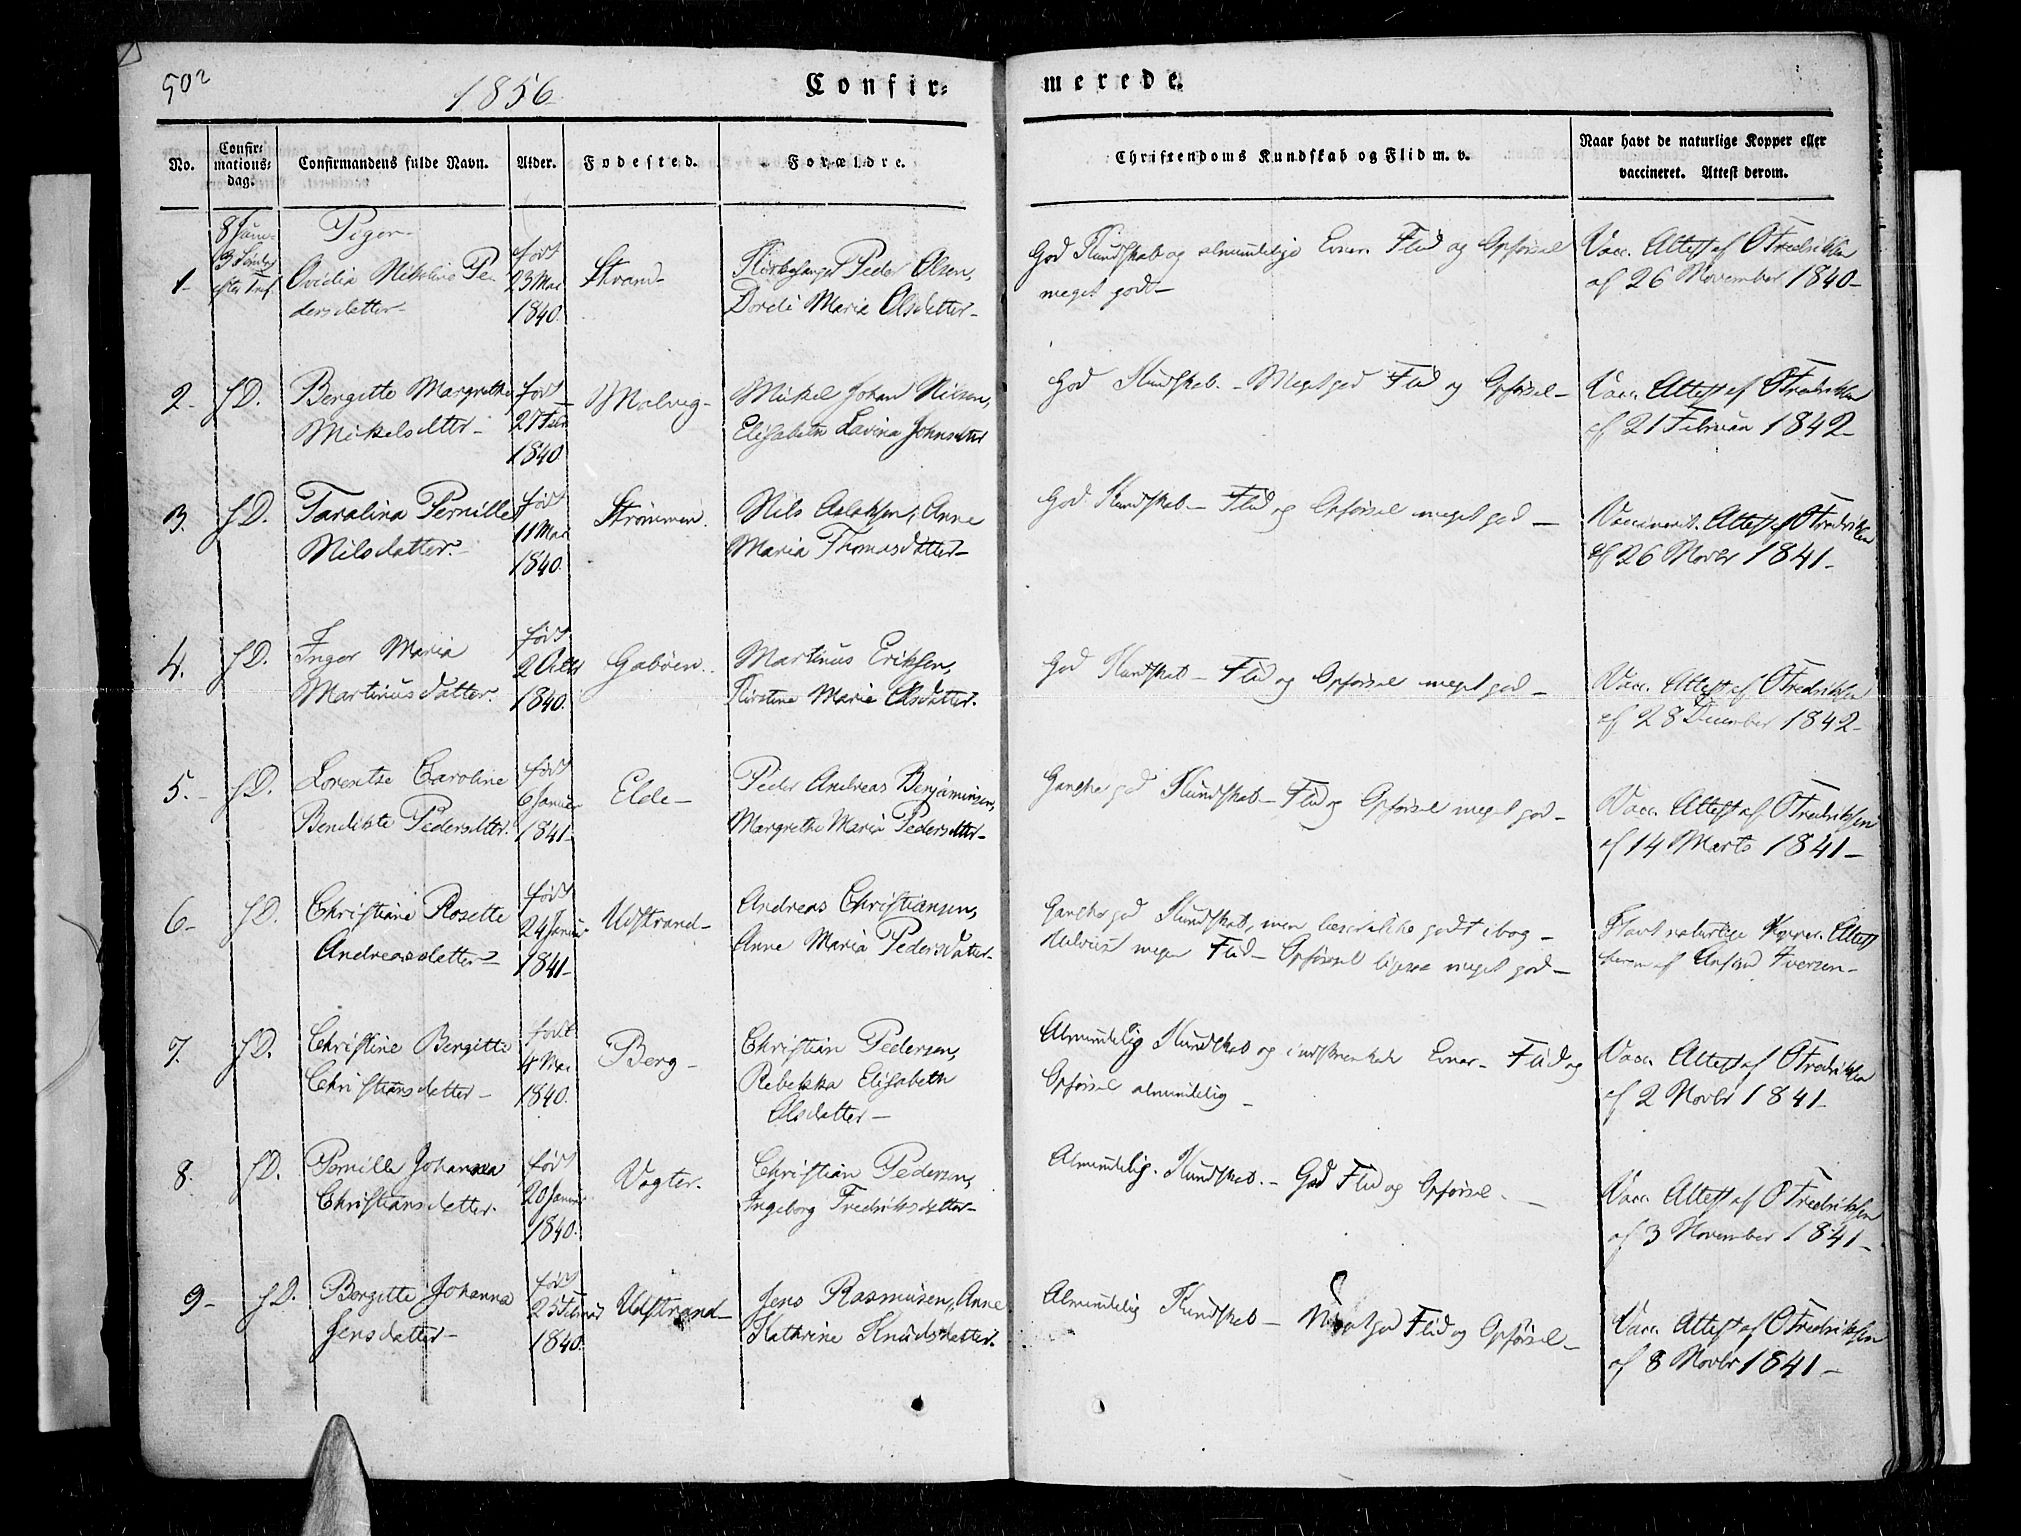 502
1856
Confir=
merede.
No.
Confir=
mations=
dag.
Confirmandens fulde Navn.
Alder.
Fødested.
Forældre.
Christendoms Kundskab og Flid m. v.
Naar havt de naturlige Kopper eller
vaccineret. Attest derom.
Piger
1
8 Juni
3 Søndag
efter Tref.
Ovidia Nikoline Pe
dersdatter
født
23 Mai
1840.
Strand
Kirkesanger Peder Olsen,
Dordi Maria Olsdatter
God Kundskab og almindelige Evner. Flid og Opførsel
meget godt
Vacc. Attest af O Fredriksen
af 26 November 1840
2.
h D.
Bergitte Margrethe
Mikelsdtter
født
27 Febr
1840
Malvig
Mikel Johan Nilsen,
Elisabeth Lavina Johnsdtter
God Kundskab. – Meget god Flid og Opførsel –
Vacc. Attest af O Fredriksen
af 21 Februar 1842
3.
h D.
Taralina Pernille
Nilsdatter.
født
11 Mai
1840.
Strømmen.
Nils Aslaksen, Anne
Maria Thomasdatter
God Kundskab – Flid og Opførsel meget god –
Vaccineret. Attest af O Fredriksen
af 26 Novbr 1841
4.
h D.
Inger Maria
Martinusdatter.
født
2 Octbr
1840.
Gabøen.
Martinus Eriksen,
Kirstine Marie Olsdatter.
God Kundskab – Flid og Opførsel meget god –
Vacc. Attest af O Fredriksen
af 28 December 1842
5.
h D.
Lorentse Caroline
Bendikte Pedersdtter.
født
6 Januar
1841
Elde
Peder Andreas Benjaminsen,
Margrethe Maria Pedersdtter
Ganske god Kundskab – Flid og Opførsel meget god –
Vacc. Attest af O Fredriksen
af 14 Marts 1841
6
h D.
Christiane Rosette
Andreasdatter
født
24 Januar
1841
Udstrand
Andreas Christiansen,
Anne Maria Pedersdatter
Ganske god Kundskab, men læser ikke godt i bog –
megen Flid – Opførsel ligesaa meget god –
Havt naturlige Kopper. Attest
derom af Iversen
7.
h D.
Christine Bergitte
Christiansdatter
født
1840.
Berg
Christian Pedersen,
Rebekka Elisabeth
Olsdatter
Almindelig Kundskab og indskrænkede Evner – Flid og
Opførsel almindelig –
Vacc. Attest af O Fredriksen
af 2 Novbr 1841
8.
h D.
Pernille Johanna
Christiansdatter.
født
20 Januar
1840.
Vogter.
Christian Pedersen,
Ingeborg Fredriksdatter
Almindelig Kundskab. – God Flid og Opførsel. –
Vacc. Attest af O Fredriksen
af 3 November 1841
9
h D.
Bergitte Johanna
Jensdatter
født
25 Februar
1840.
Udstrand
Jens Rasmusen, Anne
Kathrine Knudsdatter.
Almindelig Kundskab – Meget god Flid og Opførsel –
Vacc. Attest af O Fredriksen
af 8 Novbr 1841